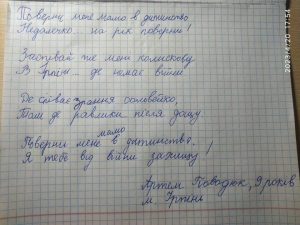 Поверни мене мамо в дитинство
Недалечко.. на рік поверни!
Заспівай же мені колискову
В Ірпіні... де немає війни
Де співає зрання соловейко,
Там де равлики після дощу.
Поверни мене мамо в дитинство,
Я тебе від війни захищу!
Артем Поводюк, 9 років
м. Ірпінь
2023/4/20 17:54